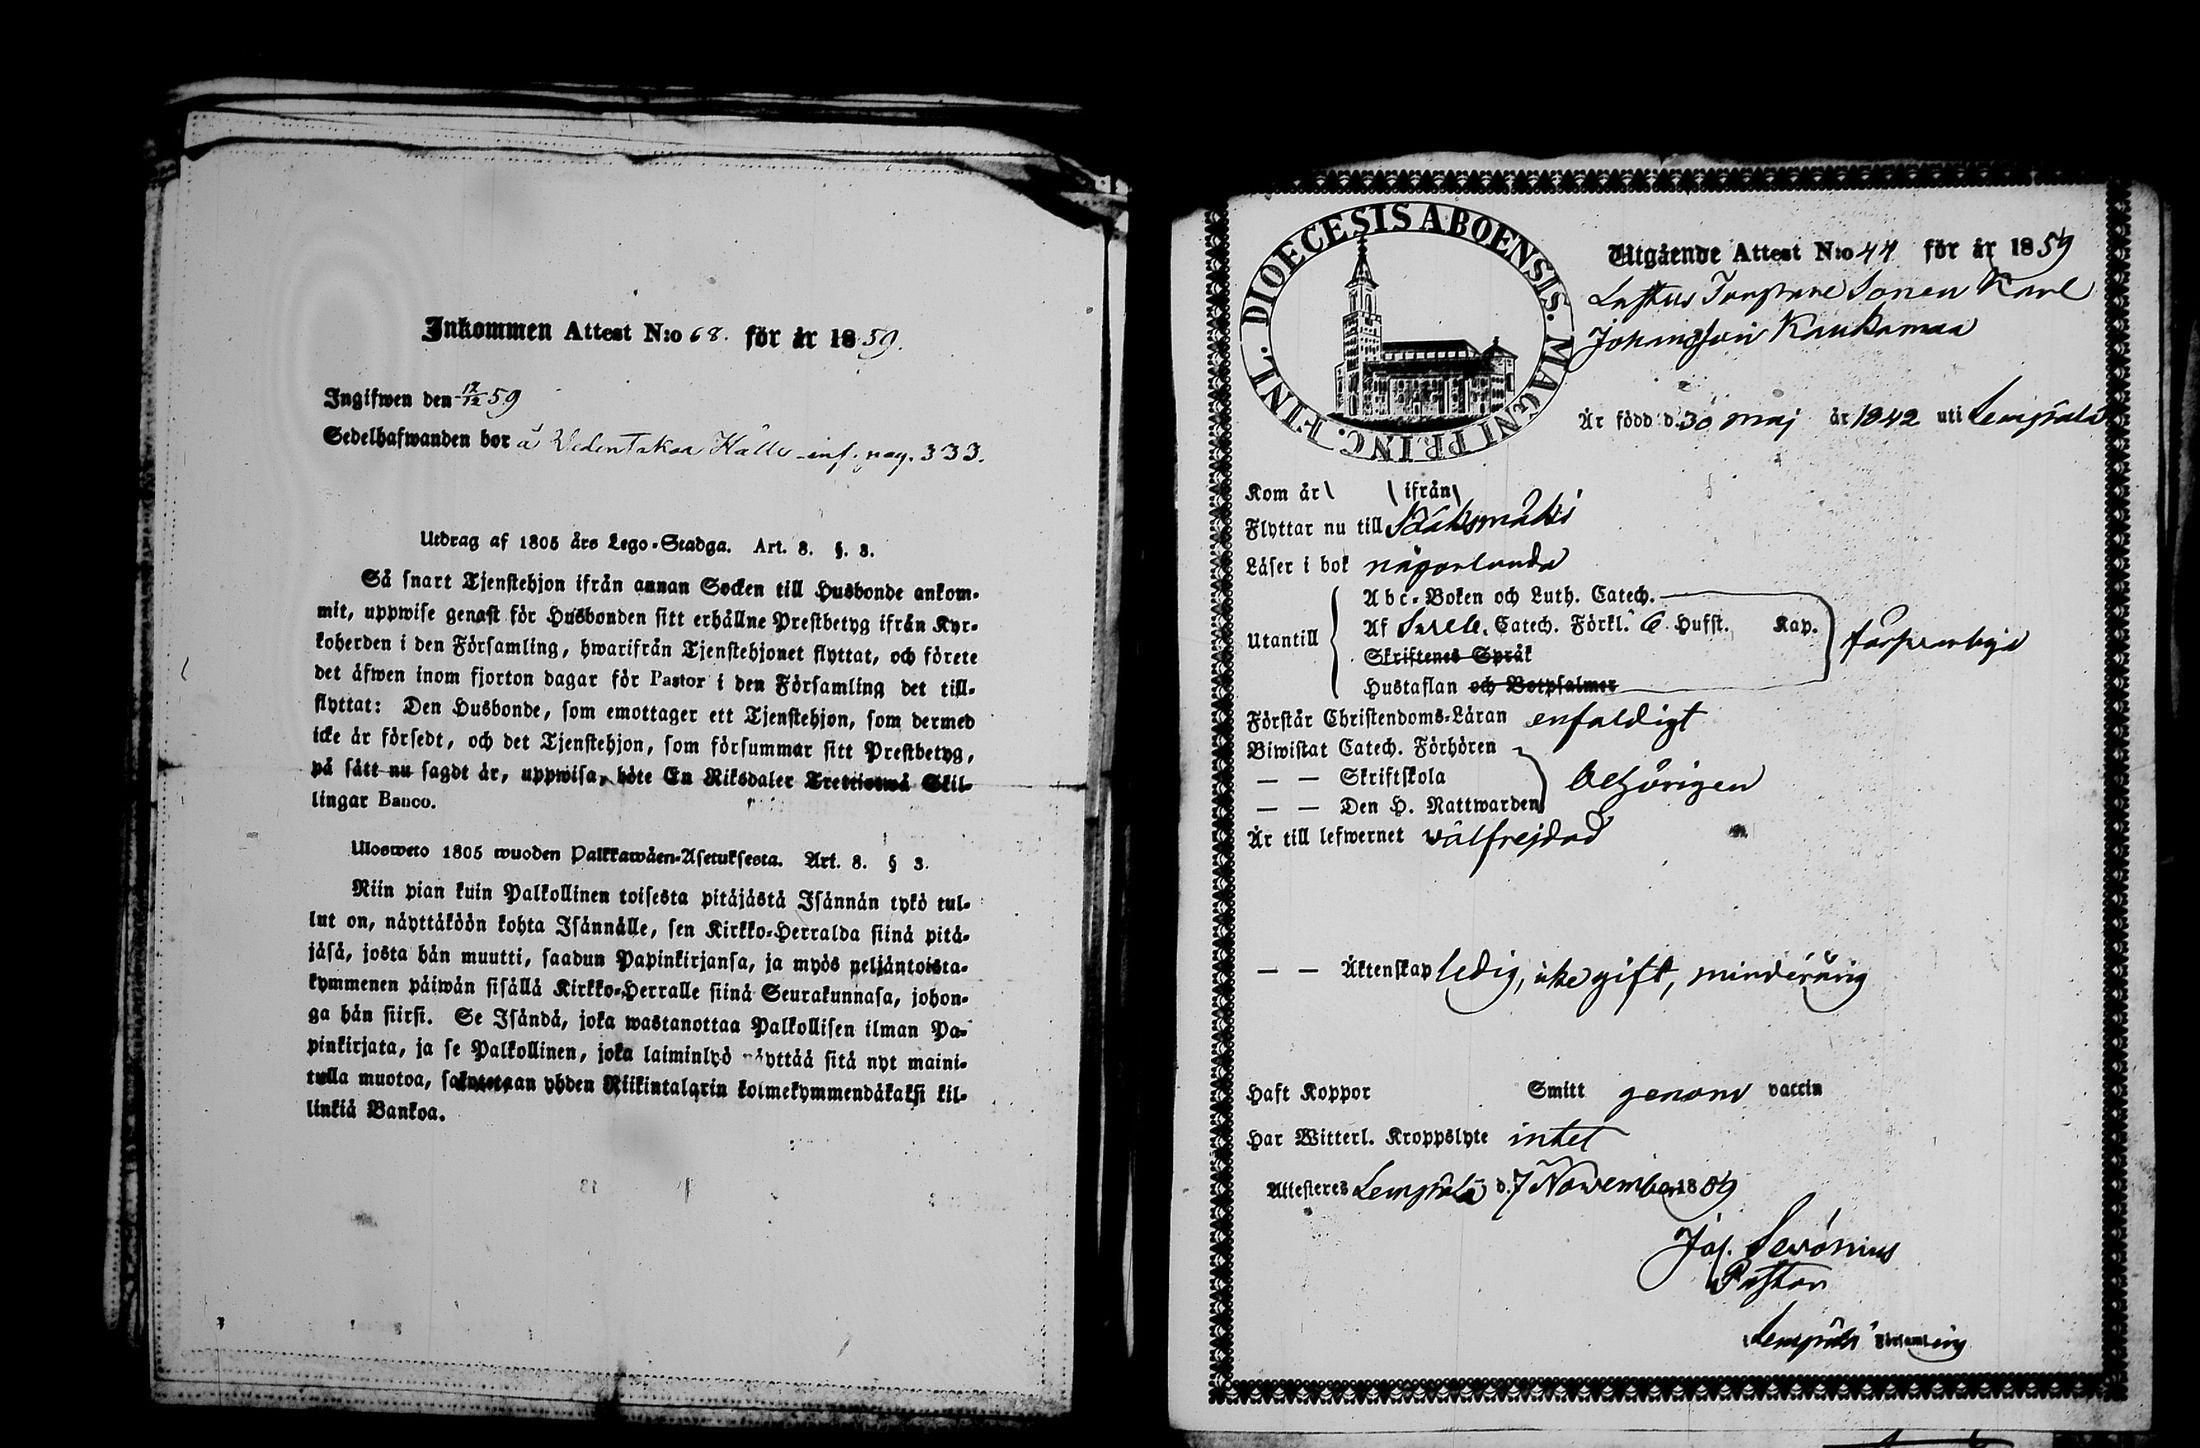 Inkommen Attest N:o 68. för år 1859.
Ingifwen den 17/12 59
Sedelhafwanden bor å Vedentakaa Källo inf. pag. 333.
Utdrag af 1805 års Lego-Stadga. Art. 8. §. 3.
Så snart Tjenstehjon ifrån annan Socken till Husbonde ankom-
mit, uppwise genast för Husbonden sitt erhållne Prestbetyg ifrån Kyr-
koherden i den Församling, hwarifrån Tjenstehjonet flyttat, och förete
det äfwen inom fjorton dagar för Pastor i den Församling det till-
flyttat: Den Husbonde, som emottager ett Tjenstehjon, som dermed
icke är försedt, och det Tjenstehjon, som försummar sitt Prestbetyg,
på sätt nu sagdt är, uppwisa, böte En Riksdaler Trettiotwå Skil-
lingar Banco.
Ulosweto 1805 wuoden Palkkawäen-Asetuksesta. Art. 8. § 3.
Niin pian kuin Palkollinen toisesta pitäjästä Isännän tykö tul-
lut on, näyttäköön kohta Isännälle, sen Kirkko-Herralda siinä pitä-
jäsä, josta hän muutti, saadun Papinkirjansa, ja myös neljäntoista-
kymmenen päiwän sisällä Kirkko-Herralle siinä Seurakunnasa, johon-
ga hän siirsi. Se Isändä, joka wastanottaa Palkollisen ilman Pa-
pinkirjata, ja se Palkollinen, joka laiminlyö näyttää sitä nyt maini-
tulla muotoa, sakotetaan yhden Riikintalarin kolmekymmendäkaksi kil-
linkiä Bankoa.
DIOECESIS ABOENSIS. MAGNI PRINC. FINL.
Utgående Attest N:o 44 för år 1859
Sonen Karl
Johansson Kaukamaa
Är född d. 30 maj år 1842 uti Lempäälä
Kom år ifrån
Flyttar nu till Sääksmäki
Läser i bok någorlunda
Utantill
Abc-Boken och Luth. Catech.
Af Svebil. Catech. Förkl. 6 Hufst. Kap.
Skriftenes Språk
Hustaflan och Botpsalmer
försvarligt
Förstår Christendoms-Läran enfaldigt
Biwistat Catech. Förhören
— — Skriftskola
— — Den H. Nattwarden
behörigen
Är till lefwernet välfrejdad
— — Äktenskap ledig, icke gift, minderårig
Haft Koppor Smitt genom vaccin
Har Witterl. Kroppslyte intet
Attesteres Lempäälä d. 7 November 1859
Jos. Serónius
Pastor
Lempäälä Församling